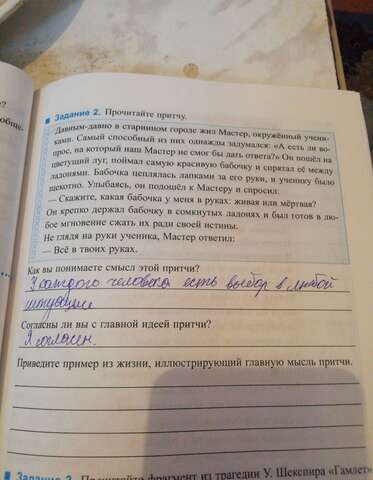 э?
обще-
Задание 2. Прочитайте притчу.
Давным-давно в старинном городе жил Мастер, окружённый учени-
ками. Самый способный из них однажды задумался: «А есть ли во-
прос, на который наш Мастер не смог бы дать ответа?» Он пошёл на
цветущий луг, поймал самую красивую бабочку и спрятал её между
ладонями. Бабочка цеплялась лапками за его руки, и ученику было
щекотно. Улыбаясь, он подошёл к Мастеру и спросил:
— Скажите, какая бабочка у меня в руках: живая или мёртвая?
Он крепко держал бабочку в сомкнутых ладонях и был готов в лю-
бое мгновение сжать их ради своей истины.
Не глядя на руки ученика, Мастер ответил:
— Всё в твоих руках.
Как вы понимаете смысл этой притчи?
У каждого человека есть выбор в любой
ситуации
Согласны ли вы с главной идеей притчи?
Я согласен.
Приведите пример из жизни, иллюстрирующий главную мысль притчи.
Задание 3. Прочитайте фрагмент из трагедии У. Шекспира «Гамлет»